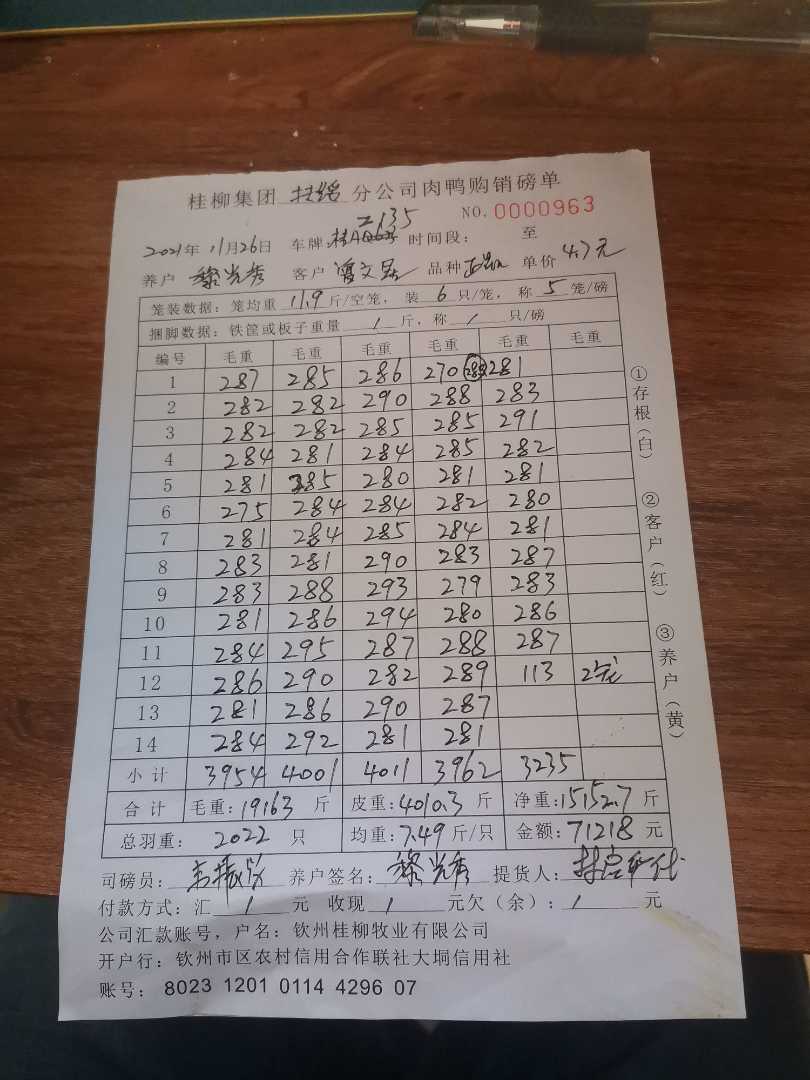 桂柳集团 扶绥 分公司肉鸭购销磅单
NO. 0000963
2135
2021年 11月26日 车牌: 桂A 时间段: 至
养户 黎光秀 客户 曾文 品种 单价 4.7元
笼装数据: 笼均重 11.9 斤/空笼, 装 6 只/笼, 称 5 笼/磅
捆脚数据: 铁筐或板子重量 / 斤, 称 / 只/磅
编号 毛重 毛重 毛重 毛重 毛重 毛重
1 287 285 286 270 285 281
2 282 282 290 288 283
3 282 282 285 285 291
4 284 281 284 285 282
5 281 285 280 281 281
6 275 284 284 282 280
7 281 284 285 284 281
8 283 281 290 283 287
9 283 288 293 279 283
10 281 286 294 280 286
11 284 295 287 288 287
12 286 290 282 289 113 2笼
13 281 286 290 287
14 284 292 281 281
小计 3954 4001 4011 3962 3235
合计 毛重: 19163 斤 皮重: 4010.3 斤 净重: 15152.7 斤
总羽重: 2022 只 均重: 7.49 斤/只 金额: 71218 元
司磅员: 养户签名: 黎光秀 提货人:
付款方式: 汇 / 元 收现 / 元欠(余): / 元
公司汇款账号, 户名: 钦州桂柳牧业有限公司
开户行: 钦州市区农村信用合作联社大垌信用社
账号: 8023 1201 0114 4296 07
①存根(白)
②客户(红)
③养户(黄)